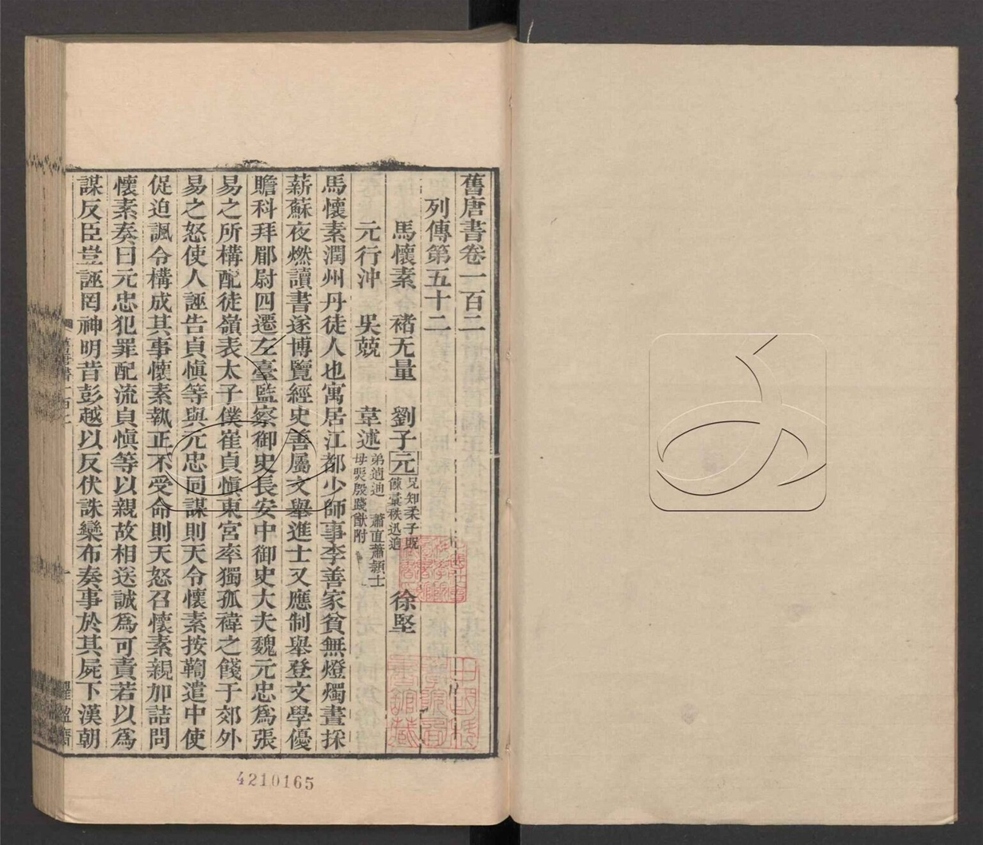 舊唐書卷一百二
列傳第五十二
馬懷素 褚无量 劉子元 兄知柔子貺 餗彙秩迅迥 徐堅
元行沖 吳兢 韋述 弟逌迪 蕭直蕭穎士 母煚殷踐猷附
馬懷素潤州丹徒人也寓居江都少師事李善家貧無燈燭晝採
薪蘇夜燃讀書遂博覽經史善屬文舉進士又應制舉登文學優
贍科拜郿尉四遷左臺監察御史長安中御史大夫魏元忠為張
易之所構配徙嶺表太子僕崔貞慎東宮率獨孤禕之餞于郊外
易之怒使人誣告貞慎等與元忠同謀則天令懷素按鞫遣中使
促迫諷令構成其事懷素執正不受命則天怒召懷素親加詰問
懷素奏曰元忠犯罪配流貞慎等以親故相送誠為可責若以為
謀反臣豈誣罔神明昔彭越以反伏誅欒布奏事於其屍下漢朝
4210165